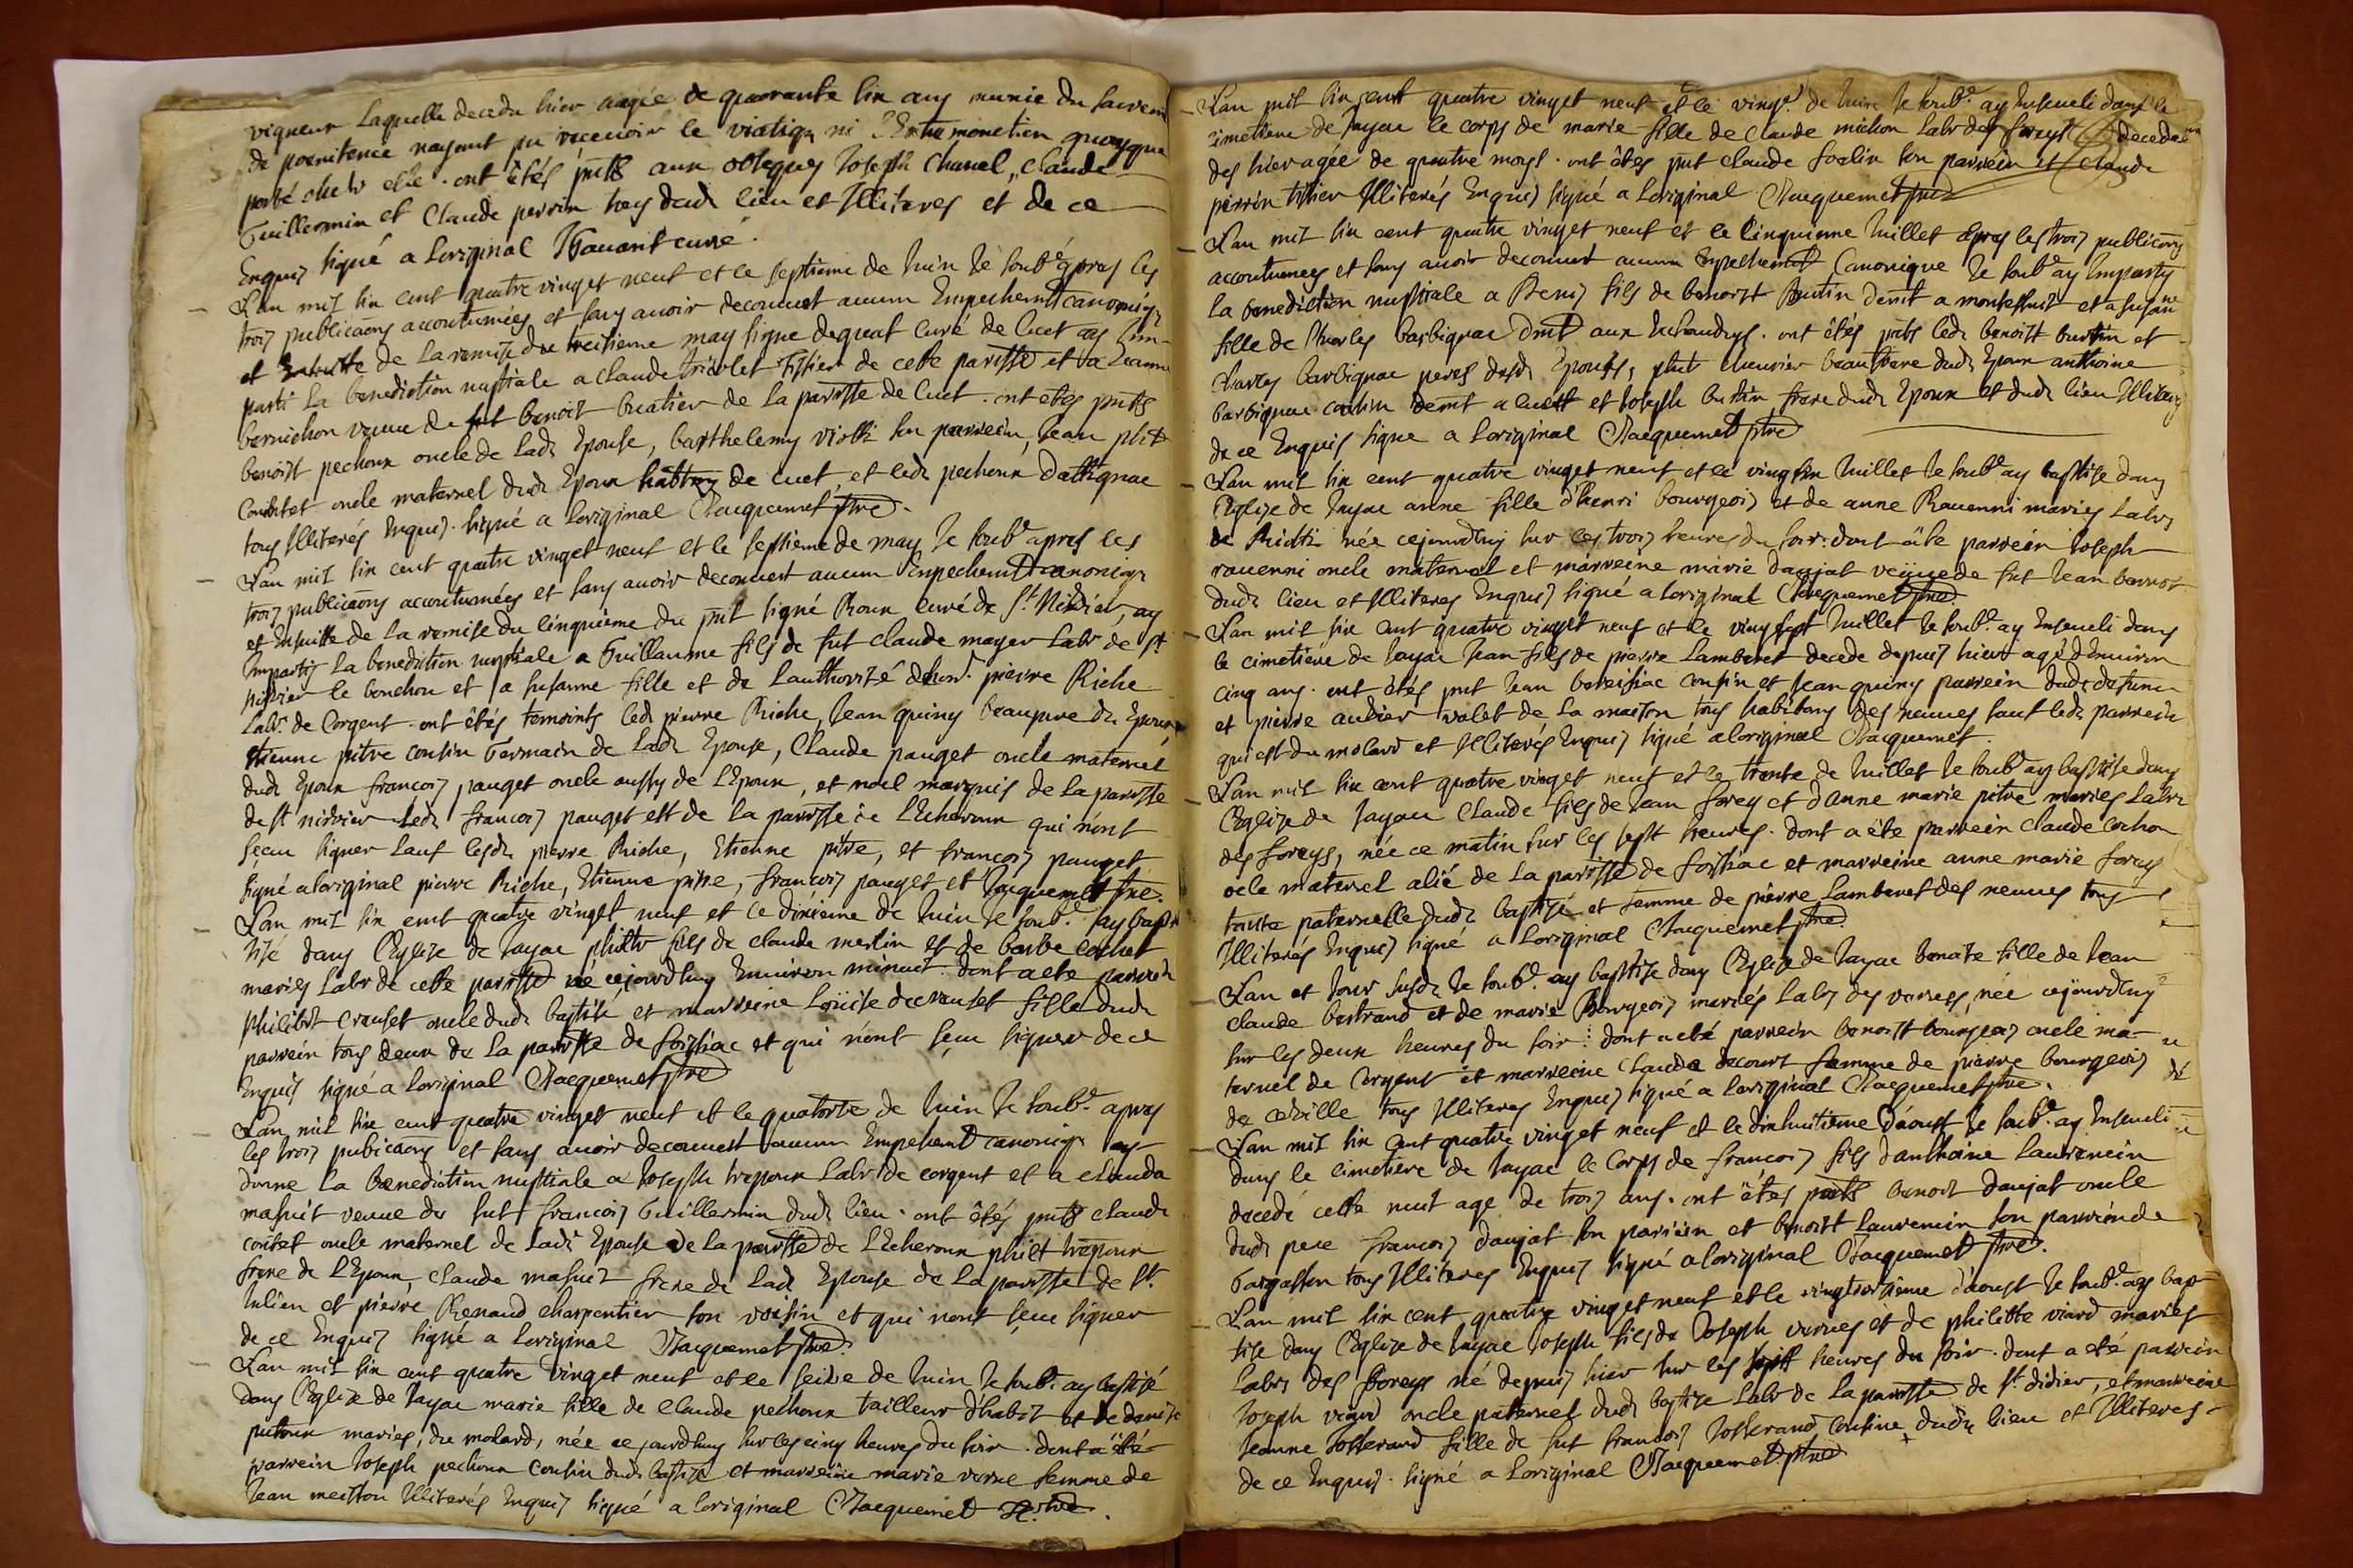 vigneur Laquelle deceda hier aagée de quarante six ans munie du sacrem
de poenitence nayant pu recevoir le viatiq ni l'Extre monction quoyque
porté chés elle. ont êtés pnts aux obseques Joseph Chanel, Claude
Guillermin et Claude perrin tous dudt lieu et Illiterés et de ce
Enquis signé a Loriginal curé.
Lan mil six cent quatre vinget neuf et le septieme de Juin Je soubé apres les
trois publicaons accoutumées et sans avoir decouvert aucun Empechemt canoniq
et Ensuitte de La remise du treisieme may signé curé de Cuet ay Im-
parti La benediction nuptiale a Claude tricolet Tissier de cette parisse et a Jeanne
bernichon veuve de fut benoit buatier de la parisse de Cuet. ont etés pnts
benoist pechoux oncle de Lade Epouse, barthelemy violli son parrein, Jean phit
oncle maternel dudt Epoux de Cuet, et ledt pechoux dattignac
tous Illiterés Enquis. signé a Loriginal Jacquemet ptre.
Lan mil six cent quatre vinget neuf et le septieme de may Je soubé apres les
trois publicaons accoutumées et sans avoir decouvert aucun Empechemt canoniq
et Ensuitte de La remise du cinquieme du pnt signé Roux curé de St Nisier, ay
Imparti La benediction nuptiale a Guillaume fils de fut claude mayer Labr de St
nisier le bouchou et a susanne fille et de Lauthorité de pierre Riche
Labr de Corgent. ont êtés temoints ledt pierre Riche, Jean quiny beaupere de Epoux
Etienne pitre cousin Germain de Lade Epouse, Claude pauget oncle maternel
dudt Epoux francois pauget oncle aussy de LEpoux, et noel marquis de La parisse
de St nisier ledt francois pauget est de La parisse de LEcheroux qui n'ont
seeu signer sauf lesdt pierre Riche, Etienne pitre, et francois pauget
signé aloriginal pierre Riche, Etienne pitre, francois pauget et Jacquemet ptre.
Lan mil six cent quatre vinget neuf et le dixieme de Juin Je soubé ay bap-
tisé dans l'Eglize de Jayac phittr fils de claude merlin et de barbe cochet
mariés Labr de cette parisse né cejourdhuy Environ minuit. dont a ete parrein
philibt creuset oncle dudt baptisé et marreine Loüise decreuset fille dudt
parrein tous deux de La parisse de foissiac et qui n'ont seeu signer de ce
Enquis signé a Loriginal Jacquemet ptre
Lan mil six cent quatre vinget neuf et le quatorze de Juin Je soubé apres
les trois pubicaons et sans avoir decouvert aucun Empechemt canoniq ay
donne La benediction nuptiale a Joseph trepoux Labr de corgent et a clauda
masuit veuve de fut francois Guillermin dudt lieu. ont êtés pnts claude
contet oncle maternel de Lade Epouse de La parisse de LEcheroux philt trepoux
frere de LEpoux, Claude masuit frere de Lade Epouse de La parisse de St
Julien et pierre Renaud charpentier son voisin et qui n'ont seeu signer
de ce Enquis signé a Loriginal Jacquemet ptre.
Lan mil six cent quatre vinget neuf et le seize de Juin Je soubé ay baptisé
dans l'Eglize de Jayac marie fille de Claude pechoux tailleur d'habit et de denise
putoux mariés, du molard, née cejourdhuy sur les cinq heures du soir. dont a êté
parrein Joseph pechoux cousin dudt baptisé et marreine marie verne femme de
Jean Illiterés Enquis signé a Loriginal Jacquemet ptre.
Lan mil six cent quatre vinget neuf et le vinge de Juin Je soubé ay Enseveli dans le
cimetiere de Jayac le corps de marie fille de Claude michon Labr des foreys decedée
des hier agée de quatre moys. ont êtés pnt claude son parrein et Claude
perrin tissier Illiterés Enquis signé a Loriginal Jacquemet ptre
Lan mil six cent quatre vinget neuf et le Cinquieme Juillet apres les trois publicaons
accoutumées et sans avoir decouvert aucun Empechemt Canonique Je soubé ay Imparty
La benediction nuptiale a Denis fils de benoist Burtin demt a et a susane
fille de Charles barbignac demt aux. ont êtés pnts ledt benoist burtin et
Charles barbignac peres desdt Epouxs, philt chevrier beaufrere dudt Epoux anthoine
barbignac cousin demt a cuet et Joseph burtin frere dudt Epoux et dudt lieu Illiterés
de ce Enquis signe a Loriginal Jacquemet ptre
Lan mil six cent quatre vinget neuf et le vingsix Juillet Je soubé ay baptise dans
l'Eglize de Jayac anne fille d'henri bourgeois et de anne Ravenni mariés Labrs
de née cejourdhuy sur les trois heures du soir. dont a ête parrein Joseph
ravenni oncle maternel et marreine marie daujat veüve de fut Jean
dudt lieu et Illiteres Enquis signé a Loriginal Jacquemet ptre.
Lan mil six cent quatre vinget neuf et le vingsept Juillet Je soubé ay Enseveli dans
le cimetiere de Jayac Jean fils de pierre Lamberet decede depuis hier agé d'Environ
cinq ans. ont êtés pnt Jean cousin et Jean quiny parrein dudt defunct
et pierre audier valet de La maison tous habitans des vennes sauf ledt parrein
qui est du molard et Illiterés Enquis signé aloriginal Jacquemet.
Lan mil six cent quatre vinget neuf et le trente de Juillet Je soubé ay baptise dans
l'Eglize de Jayac Claude fils de Jean forey et d'anne marie pitre mariés Labrs
des foreys, née ce matin sur les sept heures. dont a ête parrein claude cochon
ocle maternel alié de La parisse de foissiac et marreine anne marie foreys
tante paternelle dudt baptisé et femme de pierre Lamberet des vennes tous
Illiterés Enquis signé a Loriginal Jacquemet ptre.
Lan et Jour susdt Je soubé ay baptise dans l'Eglize de Jayac benoite fille de Jean
claude bertrand et de marie Bourgeois mariés Labrs des, née cejourdhuy
sur les deux heures du soir: dont a eté parrein benoist bourgeois oncle ma-
ternel de Corgent et marreine Claude decourt femme de pierre bourgeois
de tous Illiteres Enquis signé a Loriginal Jacquemet ptre.
Lan mil six cent quatre vinget neuf et le dixhuitieme d'aoust Je soubé ay Enseveli
dans le cimetiere de Jayac le Corps de francois fils d'anthoine Laurencin
decedé cette nuit age de trois ans. ont êtés pnts benoit daujat oncle
dudt pere francois daujat son parrein et benoist Laurencin son parrein de
tous Illiteres Enquis signé aloriginal Jacquemet ptre.
Lan mil six cent quatre vinget neuf et le vingtroisieme d'aoust Je soubé ay bap-
tise dans l'Eglize de Jayac Joseph fils de Joseph et de philitte viard mariés
Labrs des foreys né depuis hier sur les sept heures du soir. dont a eté parrein
Joseph viard oncle paternel dudt baptise Labr de La parisse de St didier, et marreine
Jeanne Josserand fille de fut francois Josserand cousine dudt lieu et Illiteres
de ce Enquis. signé a Loriginal Jacquemet ptre